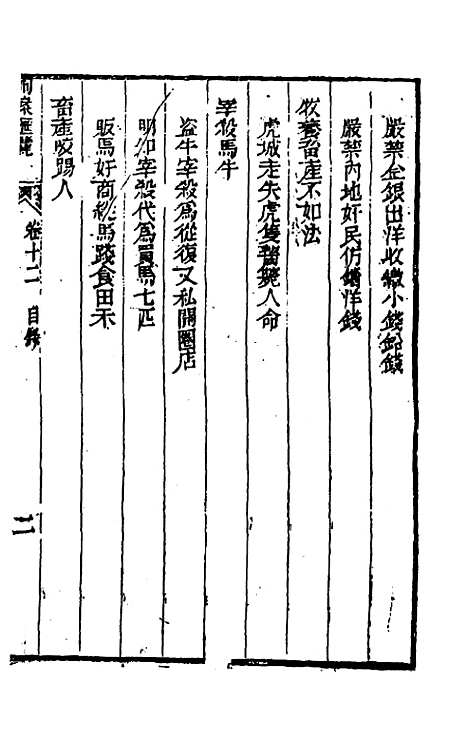 嚴禁金銀出洋收繳小錢鉛錢
嚴禁內地奸民仿鑄洋錢
牧養畜產不如法
虎城走失虎隻豬斃人命
宰殺馬牛
盜牛宰殺為從復又私開圈店
明知宰殺代為買馬七匹
販馬奸商縱馬踐食田禾
畜產咬踢人
刑案匯覽 卷十二 目錄
二